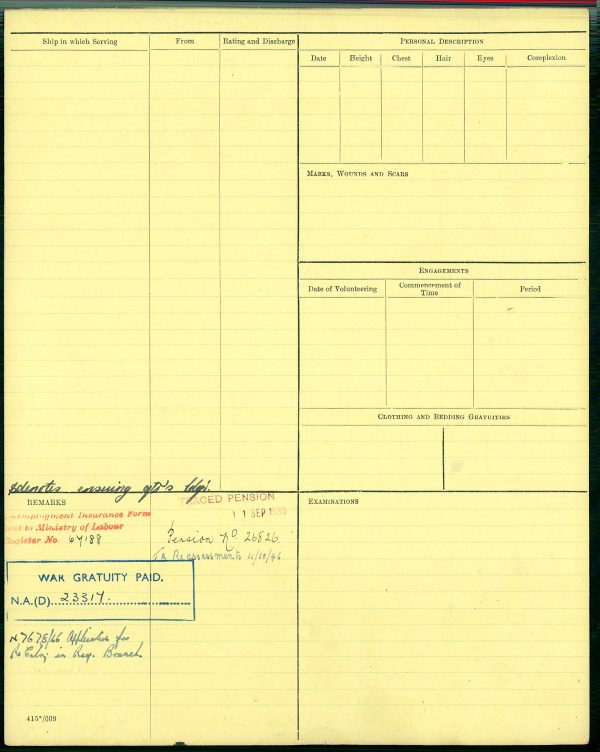 Ship in which Serving
From
Rating and Discharge
PERSONAL DESCRIPTION
Date
Height
Chest
Hair
Eyes
Complexion
MARKS, WOUNDS AND SCARS
ENGAGEMENTS
Date of Volunteering
Commencement of Time
Period
CLOTHING AND BEDDING GRATUITIES
denotes ensuing
REMARKS
Insurance Form
to Ministry of Labour
Register No. 67188
TRACED PENSION
11 SEP
Pension No. 26826
Re assessment 11/10/46
WAR GRATUITY PAID.
N.A.(D) 23317
N7678/46 Application for
Re Entry in Reg. Branch
EXAMINATIONS